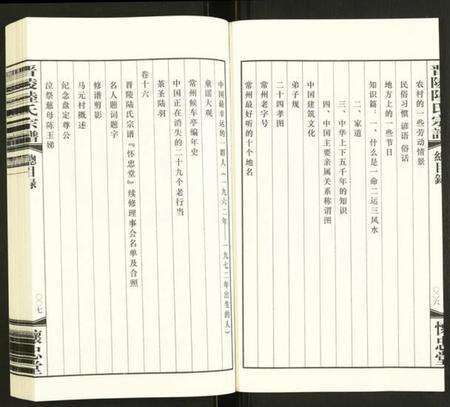 晋陵陆氏宗谱 总目录 〇〇六 怀忠堂
农村的一些劳动情景
民俗习惯 谚语 俗话
地方上的一些节日
知识篇：一、什么是一命二运三风水
二、家道
三、中华上下五千年的知识
四、中国主要亲属关系称谓图
二十四孝图
弟子规
中国建筑文化
常州老字号
常州最好听的十个地名
中国最幸运的一群人（一九六二年——一九七二年出生的人）
童谣大观
常州候车亭编年史
中国正在消失的二十九个老行当
茶圣陆羽
卷十六
晋陵陆氏宗谱『怀忠堂』续修理事会名单及合照
名人题词题字
修谱剪影
马元村概述
纪念盘定尊公
泣祭慈母陈玉娣
晋陵陆氏宗谱 总目录 〇〇七 怀忠堂